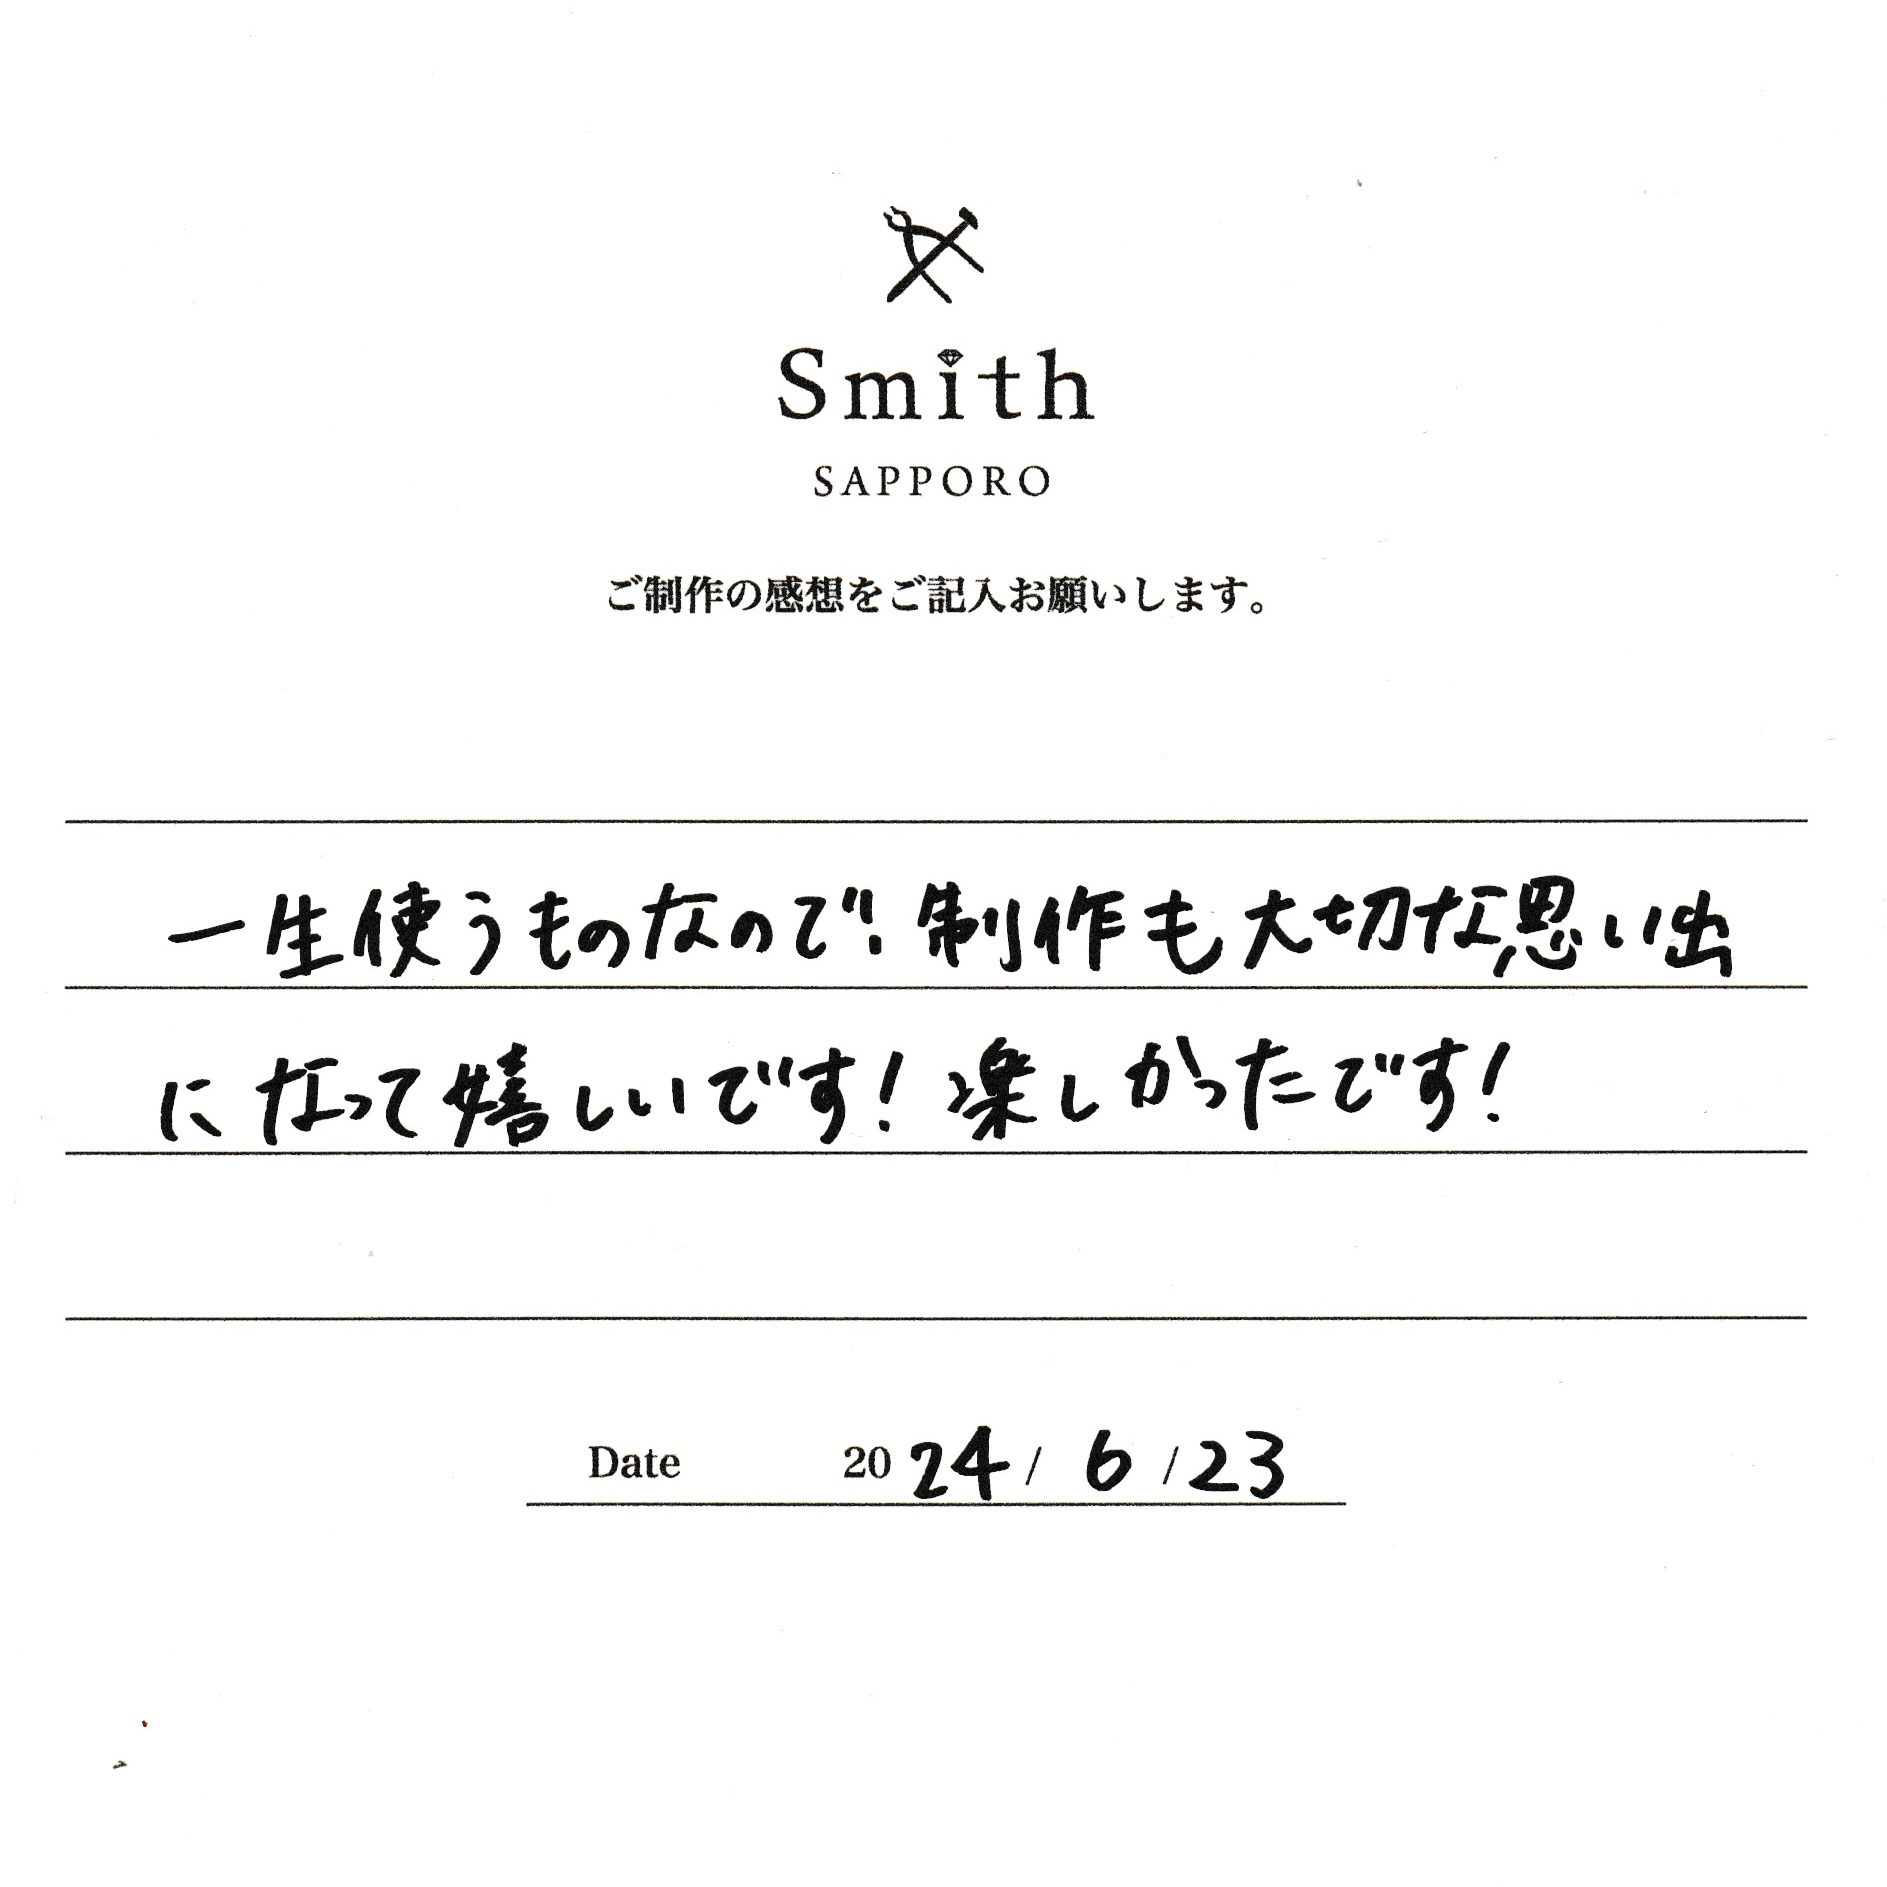 Smith
SAPPORO
ご制作の感想をご記入お願いします。
一生使うものなので、制作も大切な思い出
になって嬉しいです!楽しかったです!
Date 2024/6/23